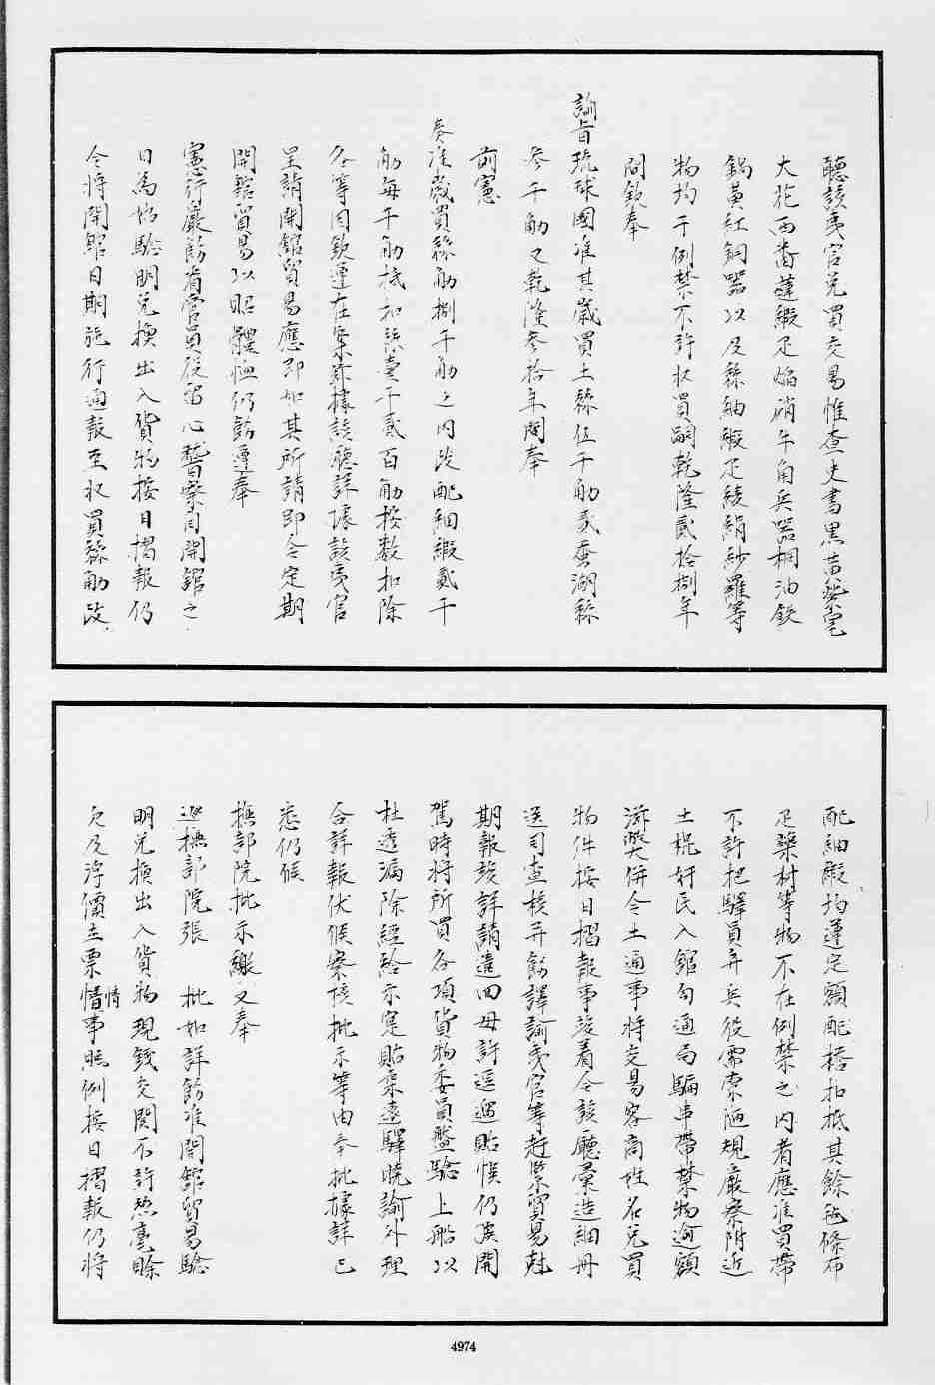 聽該夷官兌買交易惟查史書黑黃紫皂
大花西番蓮緞疋焰硝牛角兵器桐油鉄
鍋黃紅銅器以及絲紬緞疋綾絹紗羅等
物均干例禁不許收買嗣乾隆貳拾捌年
間欽奉
諭旨琉球國准其歲買土絲伍千觔貳蚕湖絲
參千觔又乾隆參拾年間奉
前憲
奏准歲買絲觔捌千觔之內改配紬緞貳千
觔每千觔抵扣絲壹千貳百觔按数扣除
各等因欽遵在案茲據該聽詳據該夷官
呈請開舘貿易應即如其所請即令定期
開舘貿易以昭體恤仍飭遵奉
憲行嚴飭省官員役留心稽察自開舘之
日為始驗明兌換出入貨物按日摺報仍
令將開舘日期施行通報至收買絲觔改
配紬緞均遵定額配搭扣抵其餘毡條布
疋藥材等物不在例禁之內者應准買帶
不許把驛員弁兵役需索陋規嚴察附近
土棍奸民入舘勾通局騙串帶禁物逾額
滋獘併令土通事將交易客商姓名兌買
物件按日摺報事竣着令該廳彙造細冊
送司查核弁飭譯諭夷官等赶緊貿易尅
期報竣詳請遣回毋許逗遛貽悞仍俟開
駕時將所買各項貨物委員盤驗上船以
杜透漏除經給示寔貼柔遠驛曉諭外理
合詳報伏候察核批示等由奉批據詳已
悉仍候
撫部院批示繳又奉
巡撫部院張 批如詳飭准開舘貿易驗
明兌換出入貨物現錢交関不許愁懸賒
欠及浮價立票情事照例按日摺報仍將
情
4974